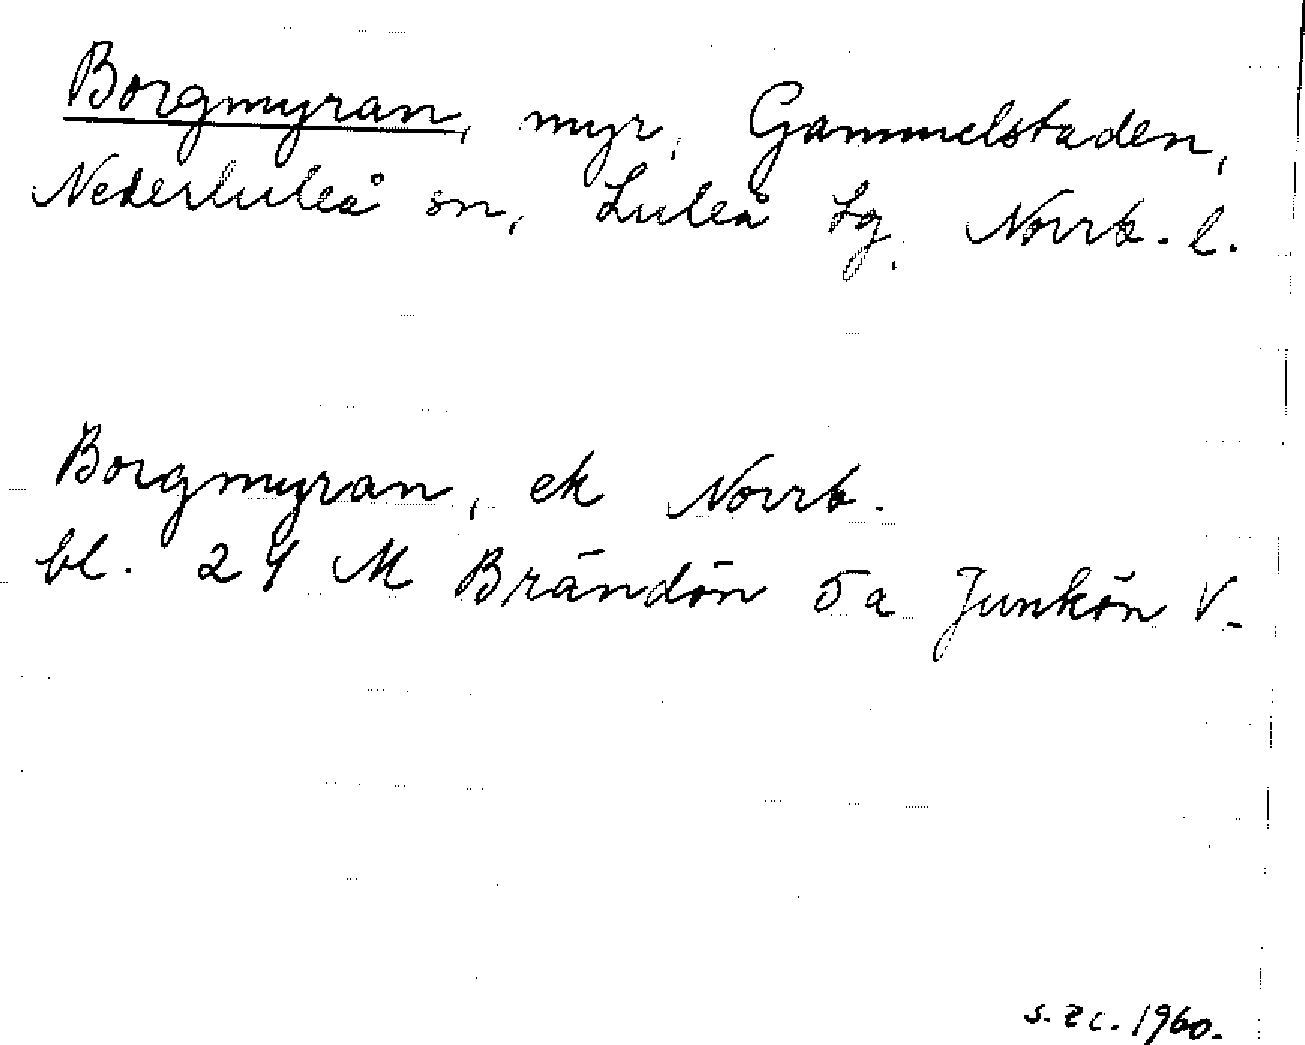 Borgmyran, myr, Gammelstaden,
Nederluleå sn, Luleå tg, Norrb. l.
Borgmyran, ek Norrb.
bl. 24 M Brändön 5a Junkön V.
s. ec. 1960.